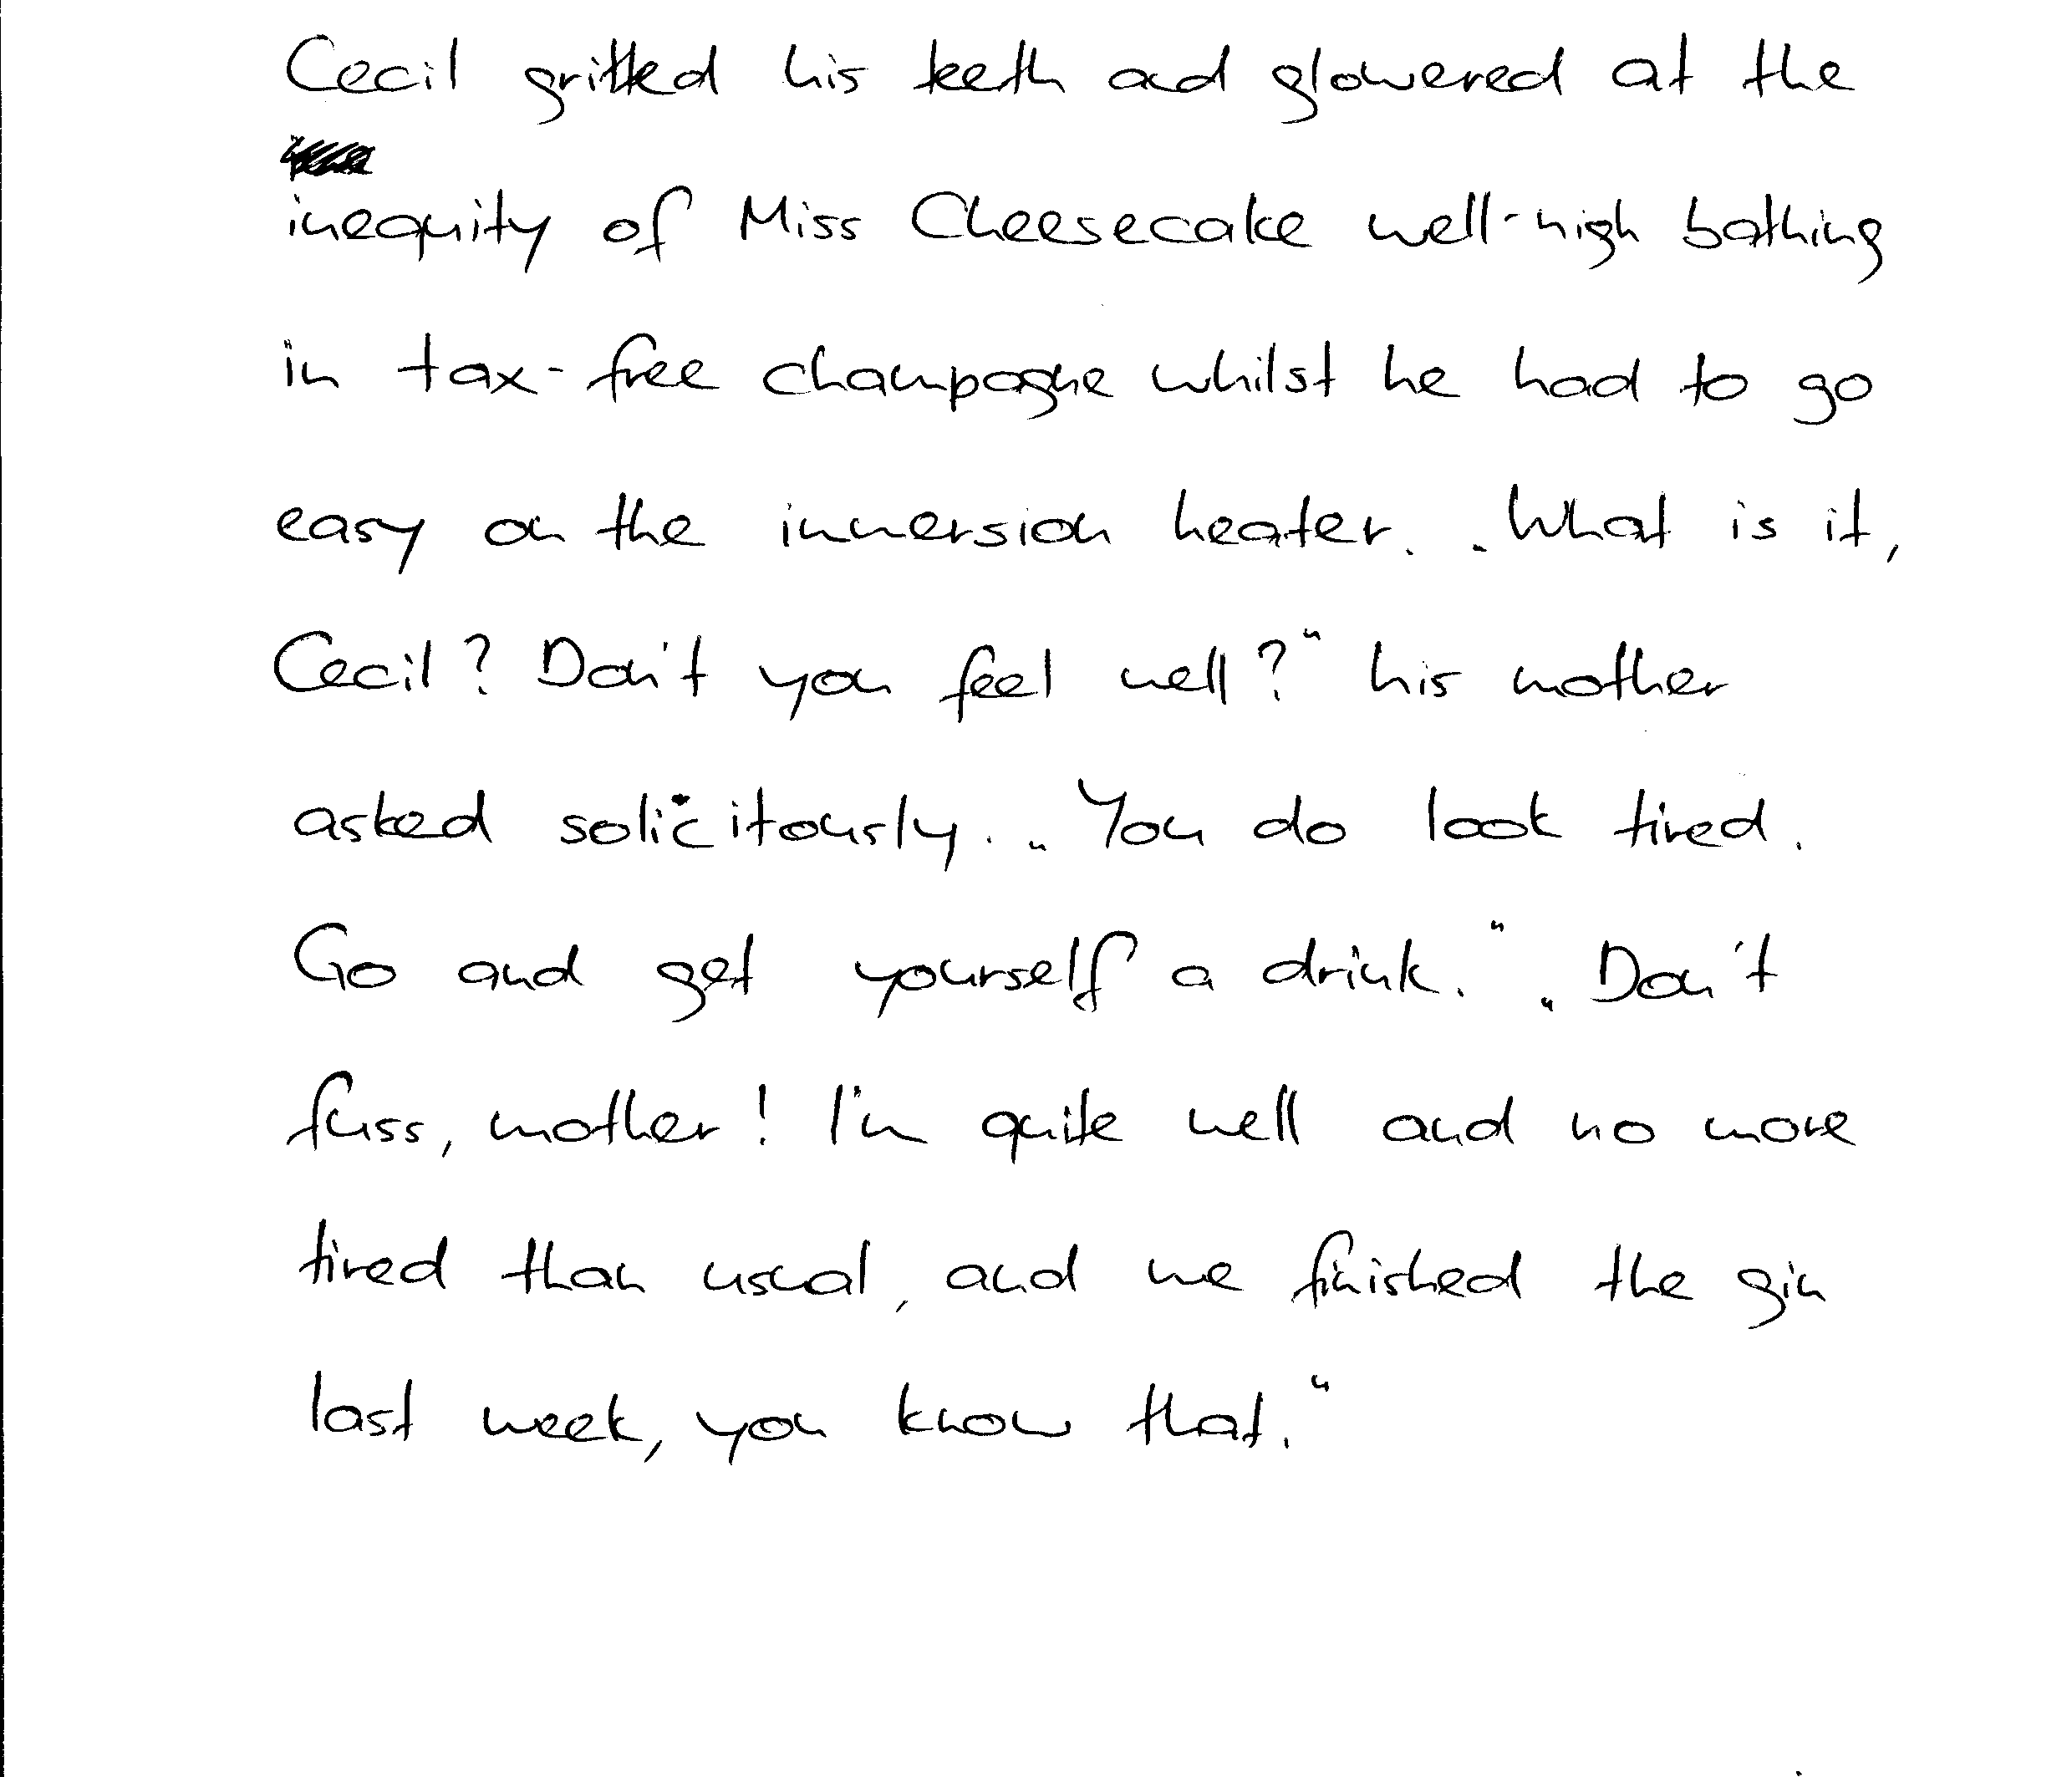 Cecil gritted his teeth and glowered at the
inequity of Miss Cheesecake well-nigh bathing
in tax-free champagne whilst he had to go
easy on the immersion heater. „What is it,
Cecil? Don't you feel well?" his mother
asked solicitously. „You do look tired.
Go and get yourself a drink." „Don't
fuss, mother! I'm quite well and no more
tired than usual, and we finished the gin
last week, you know that."